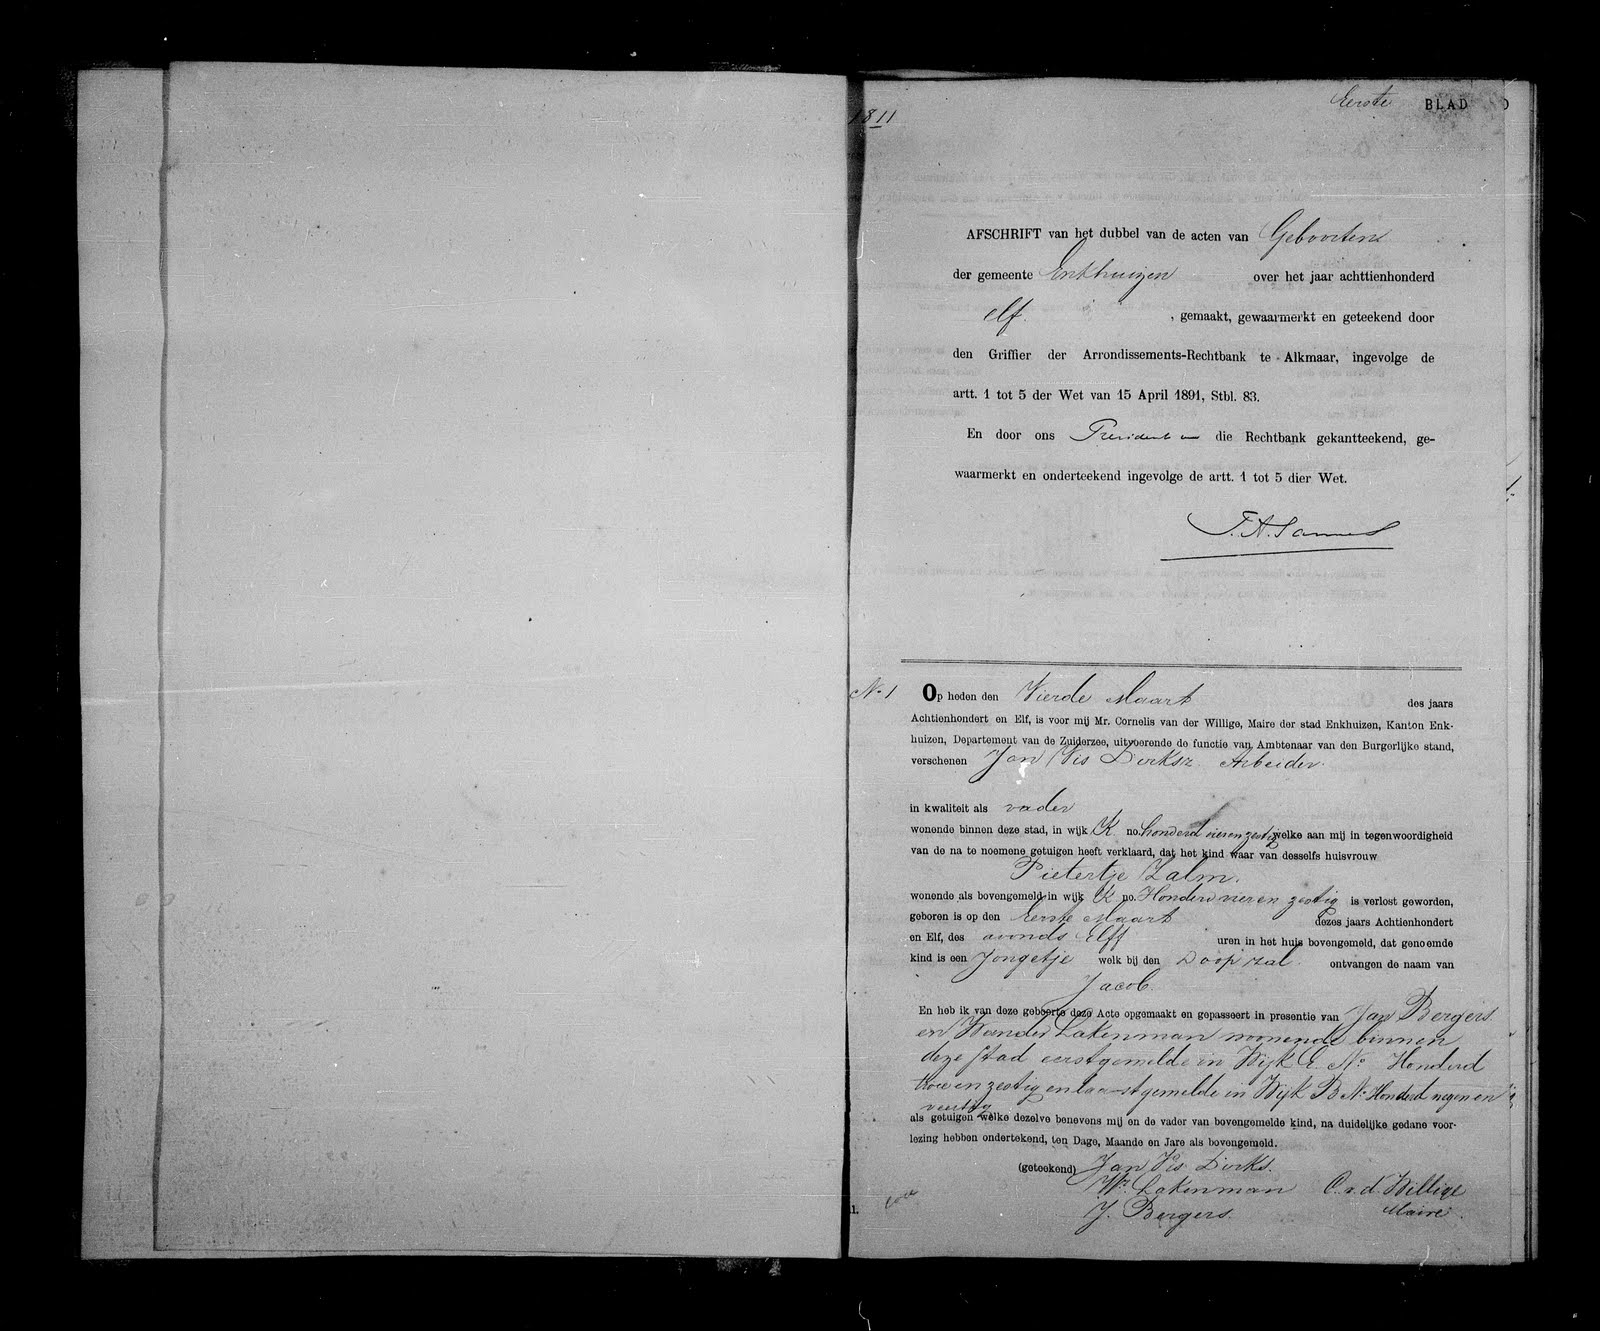 Eerste BLAD
1811
AFSCHRIFT van het dubbel van de acten van Geboorten
der gemeente Enkhuizen over het jaar achttienhonderd
elf. , gemaakt, gewaarmerkt en geteekend door
den Griffier der Arrondissements-Rechtbank te Alkmaar, ingevolge de
artt. 1 tot 5 der Wet van 15 April 1891, Stbl. 83.
En door ons President van die Rechtbank gekantteekend, ge-
waarmerkt en onderteekend ingevolge de artt. 1 tot 5 dier Wet.
No 1
Op heden den Vierde Maart des jaars
Achtienhondert en Elf, is voor mij Mr. Cornelis van der Willige, Maire der stad Enkhuizen, Kanton Enk-
huizen, Departement van de Zuiderzee, uitvoerende de functie van Ambtenaar van den Burgerlijke stand,
verschenen Jan Vis Dirksz Arbeider.
in kwaliteit als vader
wonende binnen deze stad, in wijk K no. honderd vier en zestig welke aan mij in tegenwoordigheid
van de na te noemene getuigen heeft verklaard, dat het kind waar van desselfs huisvrouw
Pietertje Zalm.
wonende als bovengemeld in wijk K no. Honderd vier en zestig is verlost geworden,
geboren is op den Eerste Maart dezes jaars Achtienhondert
en Elf, des avonds Elff uren in het huis bovengemeld, dat genoemde
kind is een Jongetje welk bij den Doop zal ontvangen de naam van
Jacob.
En heb ik van deze geboorte deze Acte opgemaakt en gepasseert in presentie van Jan Bergers
en Wander Lakenman woonende binnen
deze stad eerstgemelde in Wijk E. No. Honderd
twee en zestig en laastgemelde in Wijk B No. Honderd negen en
veertig
als getuigen welke dezelve benevens mij en de vader van bovengemelde kind, na duidelijke gedane voor-
lezing hebben ondertekend, ten Dage, Maande en Jare als bovengemeld.
(geteekend) Jan Vis Dirks.
Wr. Lakenman C. v. d. Willige
J. Bergers. Maire.
1.